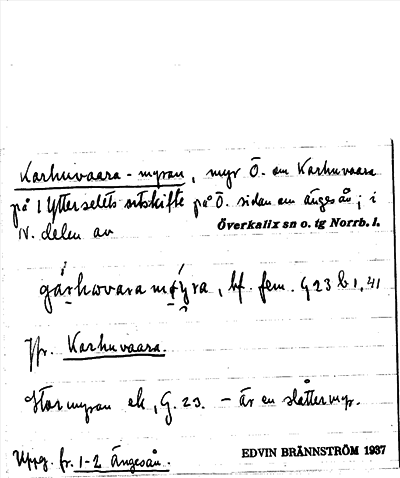 Karhuvaara-myran, myr Ö. om Karhuvaara
på 1 Ytterselets utskifte på Ö. sidan om änges ån; i
N. delen av Överkalix sn o. tg Norrb. l.
bf. fem. G 23 b 1, 41
Jfr. Karhuvaara.
Stormyran ek, G. 23. - är en slåttermyr.
Uppg. fr. 1-2 Ängesån.
EDVIN BRÄNNSTRÖM 1937